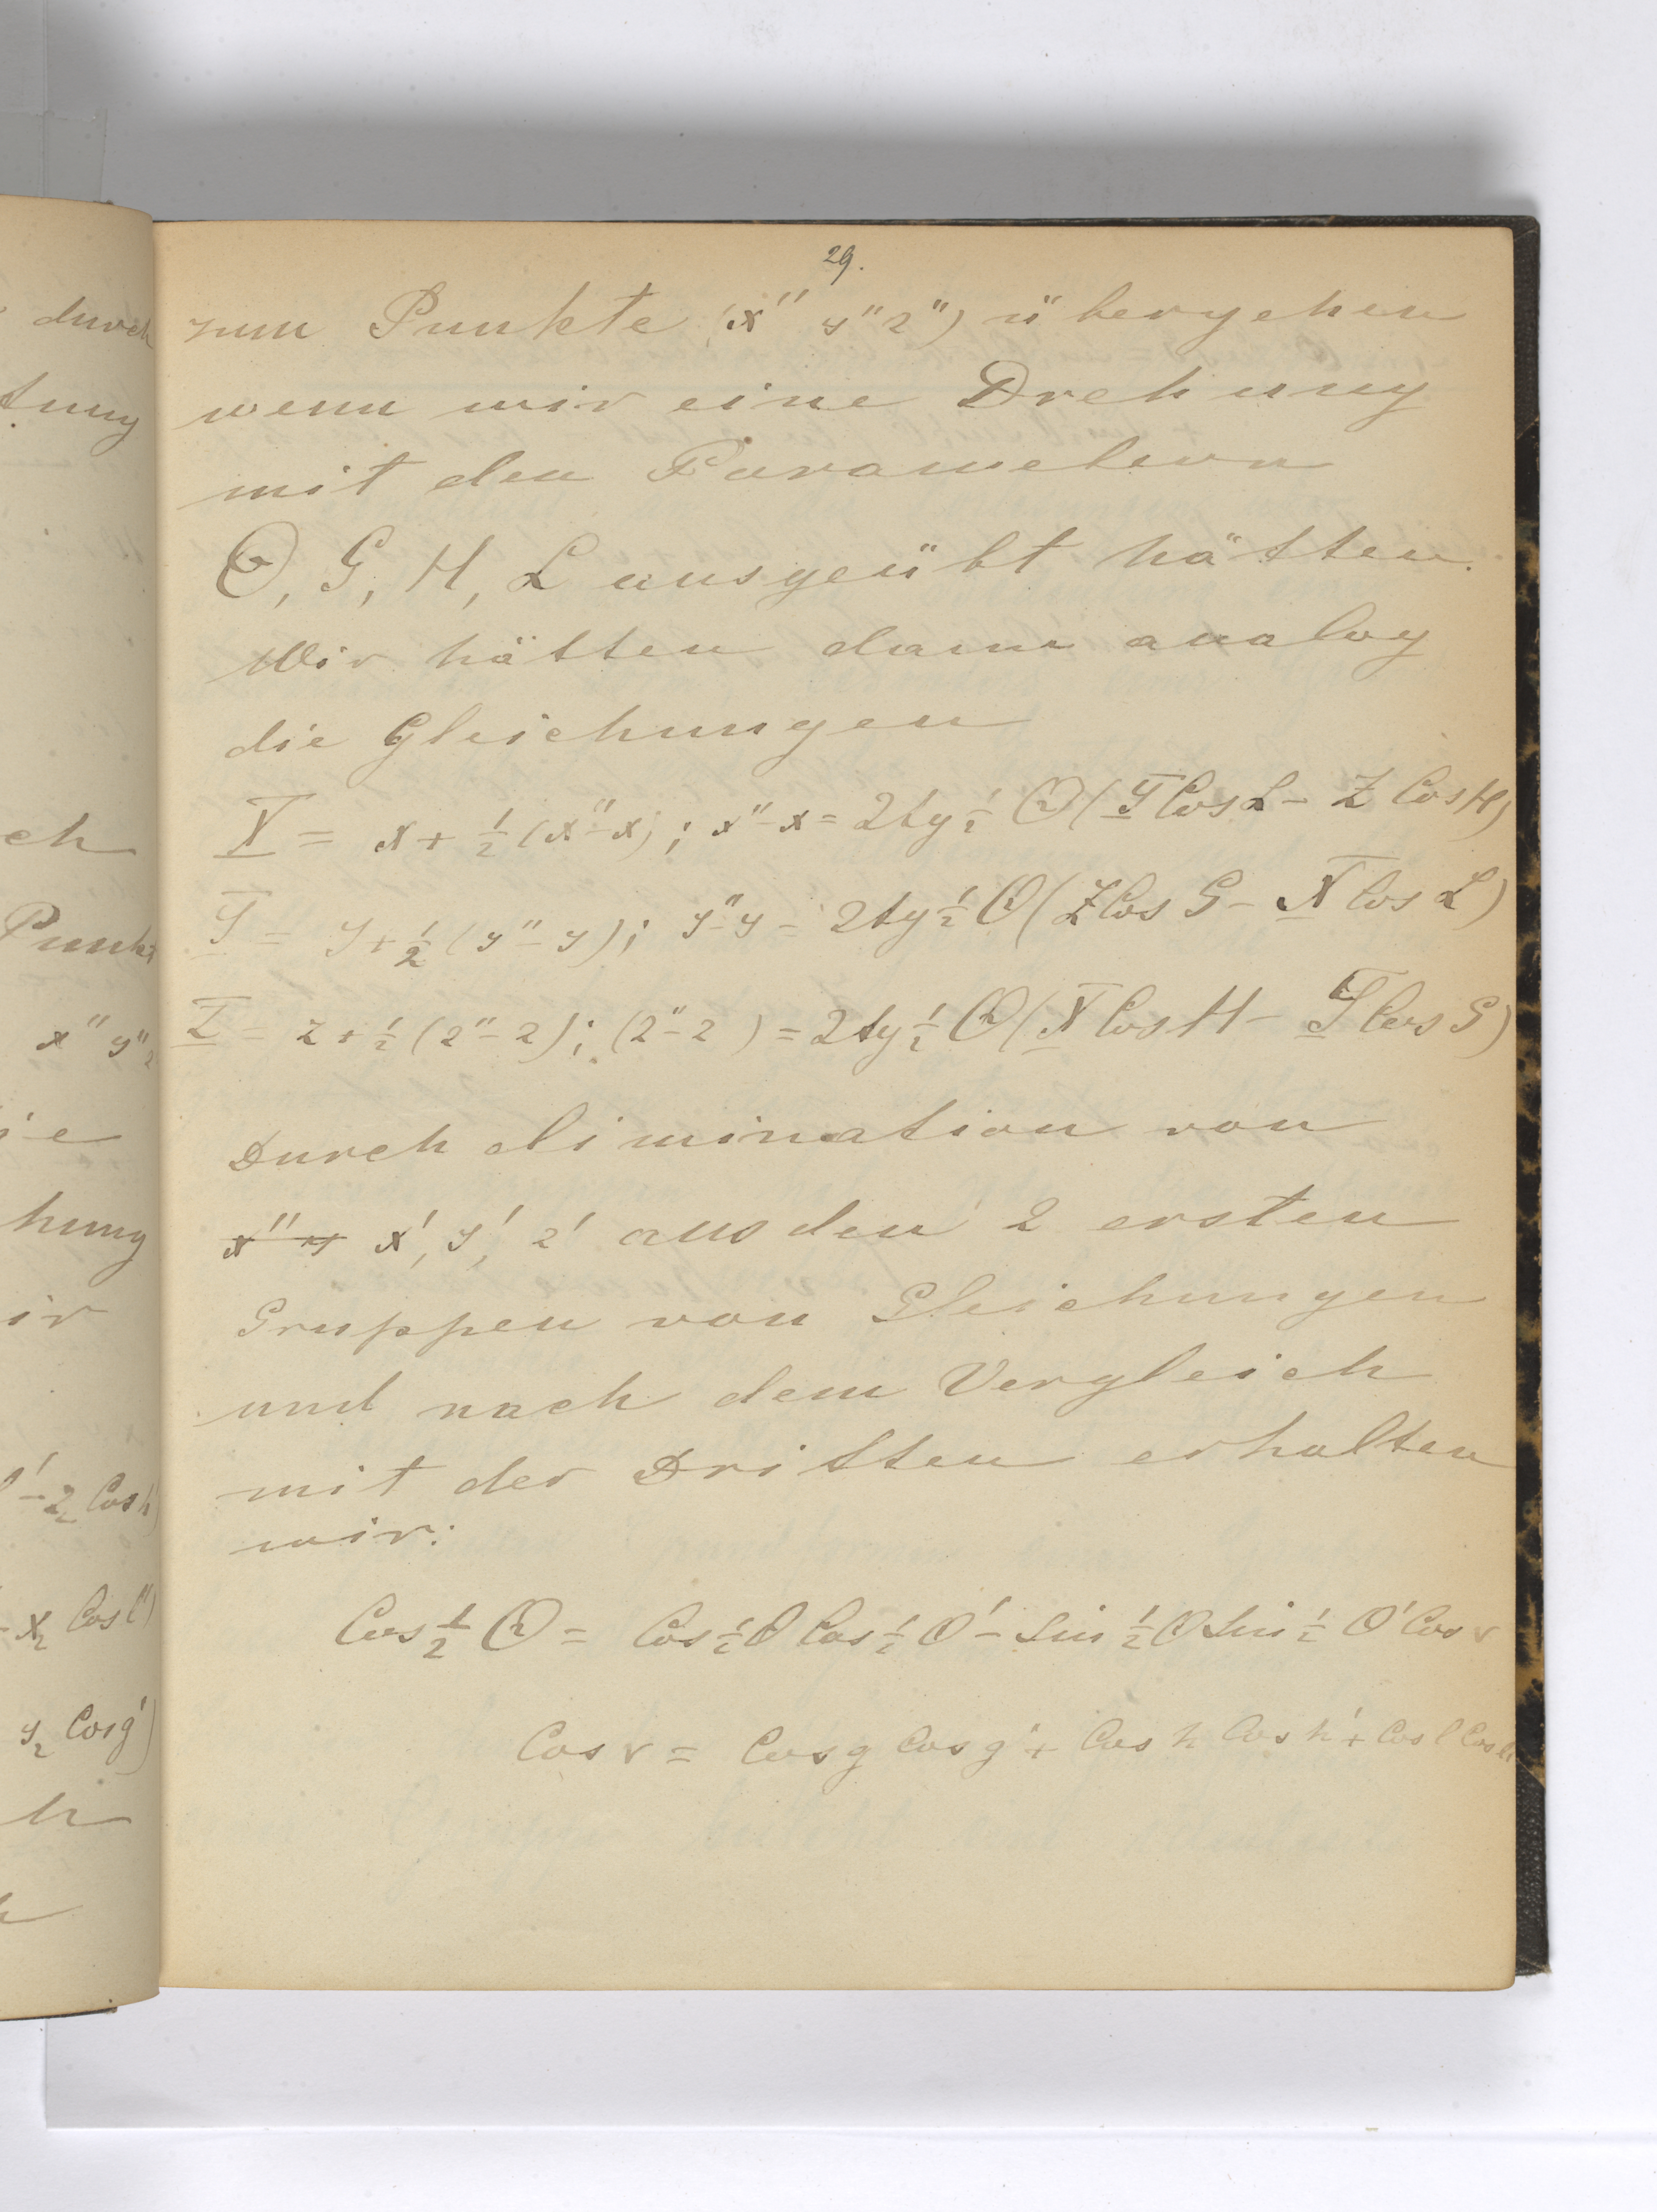 29.
zum Punkte (x'' y'' z'') übergehen
wenn wir eine Drehung
mit den Parametern
Θ, G, H, L ausgeübt hätten.
Wir hätten dann analog
die Gleichungen
X = x + 1/2 (x''-x); x''-x = 2tg 1/2 Θ (Y Cos L - Z Cos H)
Y = y + 1/2 (y''-y); y''-y = 2tg 1/2 Θ (Z Cos G - X Cos L)
Z = z + 1/2 (z''-z); (z''-z) = 2tg 1/2 Θ (X Cos H - Y Cos G)
Durch elimination von
x'' y x', y', z' aus den 2 ersten
Gruppen von Gleichungen
und nach dem Vergleich
mit der Dritten erhalten
wir:
Cos 1/2 Θ = Cos 1/2 θ Cos 1/2 θ' - Sin 1/2 θ Sin 1/2 θ' Cos v
Cos v = Cos g Cos g' + Cos h Cos h' + Cos l Cos l'
durch
tung
ch
Punkt
x'' y'' z
ie
hung
ir
l' - z₂ Cos h')
- x₂ Cos l')
y₂ Cos g')
h